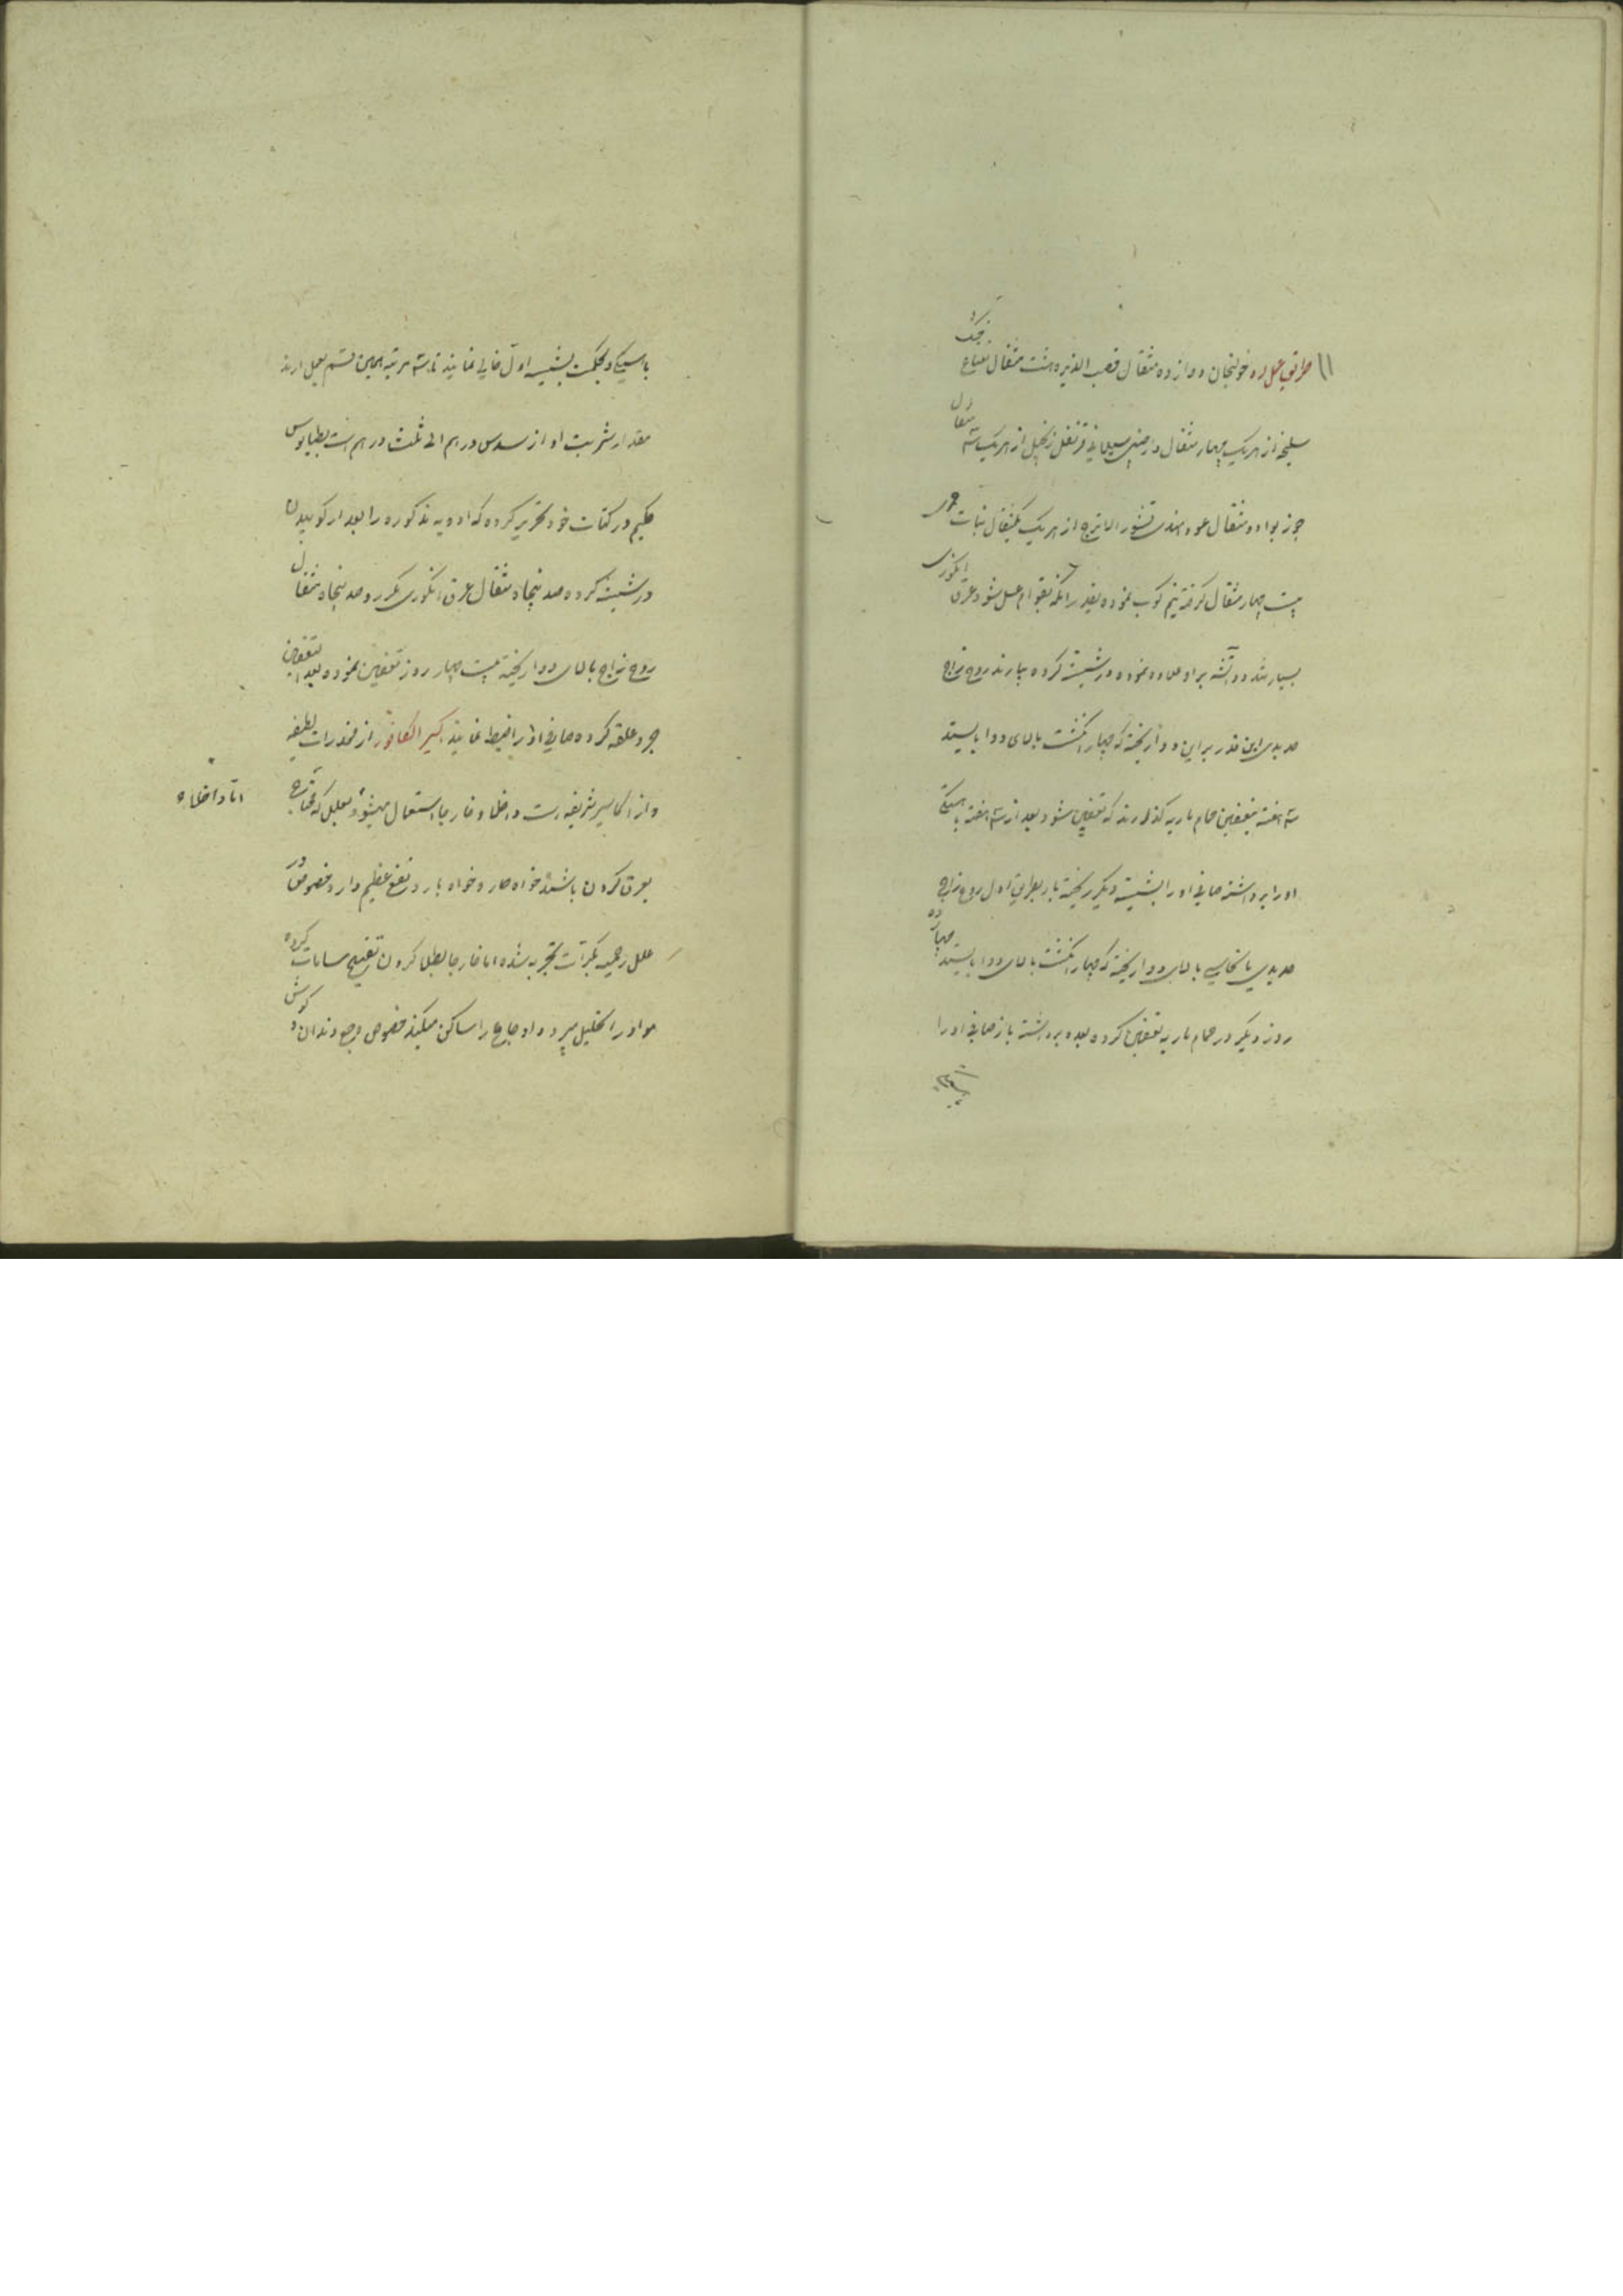 طریق عمل او خولنجان دوازده مثقال قصب الذریره هشت مثقال نعناع خشک
سلیخه از هریک چهار مثقال دارچینی سیلانی قرنفل زنجبیل از هریک سه مثقال
جوز بوا دو مثقال عود هندی قشور الاترج از هریک یکمثقال نبات
بیست چهار مثقال گرفته نیم کوب نموده بقدر آنکه بقوام عسل شود عرق انگوری
بسیار تند دو آتشه براو علاوه نموده در شیشه کرده بیارند روح زاج
حدیدی این قدر بر این دوا ریخته که چهار انگشت بالای دوا بایستد
سه هفته بتعفین حمام ماریه گذارند که تعفین شود بعد از سه هفته باهستگی
او را برداشته صافی او را بشیشه دیگر ریخته باز بطریق اول روح زاج
حدیدی یا نحاسی بالای دوا ریخته که چهار انگشت بالای دوا بایستد چهارده
روز دیگر در حمام ماریه تعفین کرده بعده برداشته باز صافی او را
باهستگی
بشیشه اول خالی نمایند تا سه مرتبه بهمین قسم بعمل ارند
مقدار شربت او از سدس درهم الی ثلث درهم است بطلیاموس
حکیم در کتاب خود تحریر کرده که ادویه مذکوره را بعد از کوبیدن
در شیشه کرده صد پنجاه مثقال عرق انگوری مکرر و صد پنجاه مثقال
روح زاج بالای دوا ریخته بیست چهار روز تعفین نموده بعد التعفین
جر و علقه کرده صافی او را ضبط نمایند اکسیر الکافور از مخدرات لطیفه
و از اکاسیر شریفه است داخلا و خارجا استعمال میشود بعلل که محتاج
بعرق کردن باشند خواه حار و خواه بارد نفع عظیم دارد خصوص در
علل رحمیه بکرات تجربه شده اما خارجا بطلا کردن تفتیح مسامات کرده
مواد را تحلیل میبرد و اوجاع را ساکن میکند خصوص وجع دندان و گوش
اما داخلا